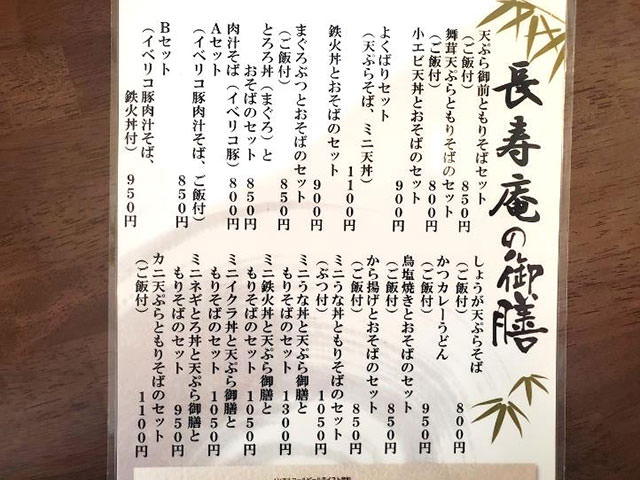 長寿庵の御膳
天ぷら御前ともりそばセット
(ご飯付) 850円
舞茸天ぷらともりそばのセット
(ご飯付) 800円
小エビ天丼とおそばのセット
900円
よくばりセット
(天ぷらそば、ミニ天丼)
1100円
鉄火丼とおそばのセット
900円
まぐろぶつとおそばのセット
(ご飯付) 850円
とろろ丼(まぐろ)と
おそばのセット 850円
肉汁そば(イベリコ豚) 800円
Aセット
(イベリコ豚肉汁そば、ご飯付)
850円
Bセット
(イベリコ豚肉汁そば、
鉄火丼付) 950円
しょうが天ぷらそば
(ご飯付) 800円
かつカレーうどん
(ご飯付) 950円
鳥塩焼きとおそばのセット
(ご飯付) 850円
から揚げとおそばのセット
(ご飯付) 850円
ミニうな丼ともりそばのセット
(ぶつ付) 1050円
ミニうな丼と天ぷら御膳と
もりそばのセット 1300円
ミニ鉄火丼と天ぷら御膳と
もりそばのセット 1050円
ミニイクラ丼と天ぷら御膳と
もりそばのセット 1050円
ミニネギとろ丼と天ぷら御膳と
もりそばのセット 950円
カニ天ぷらともりそばのセット
(ご飯付) 1100円